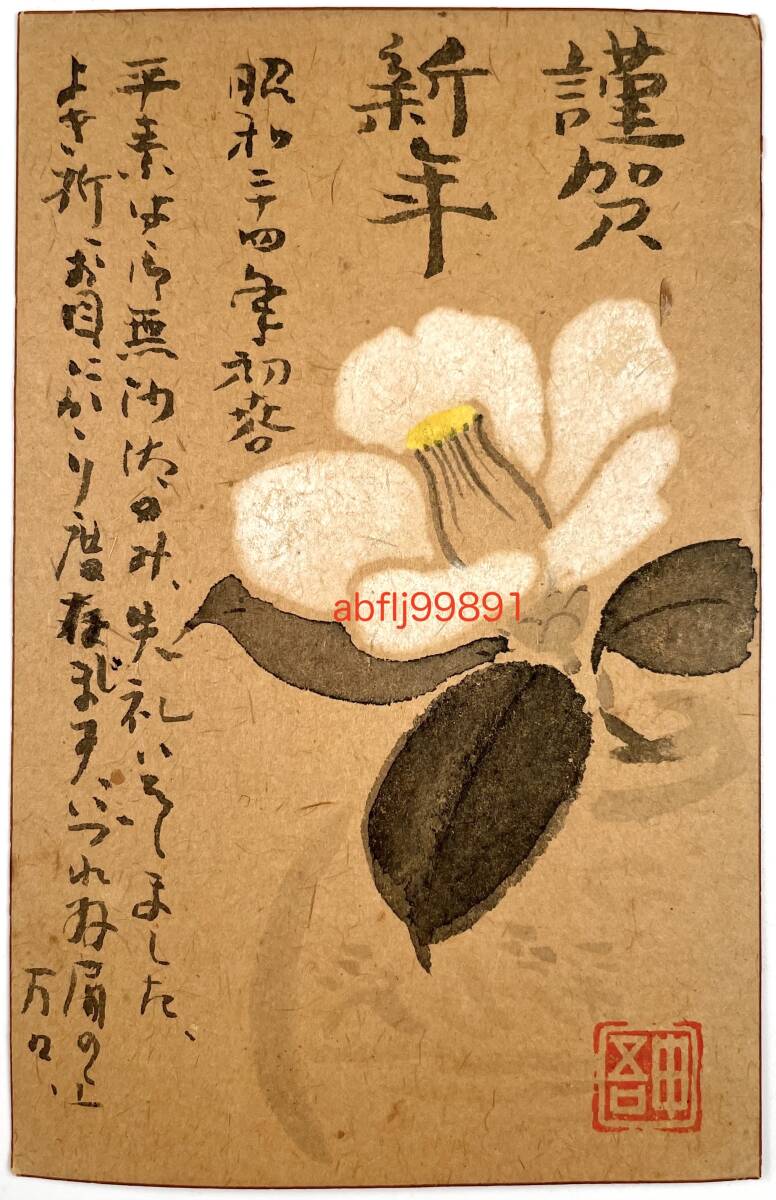 謹賀
新年
昭和二十四年初春
平素は御無沙汰のみ、失礼いたしました、
よき折お目にかかり度存じます、いづれ拝眉の上
万々、
abflj99891